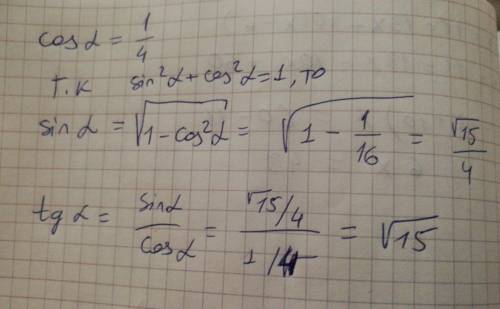 cos α = 1/4
Т.к sin²α + cos²α = 1, то
sin α = √(1 - cos²α) = √(1 - 1/16) = √15/4
tg α = sin α / cos α = (√15/4) / (1/4) = √15